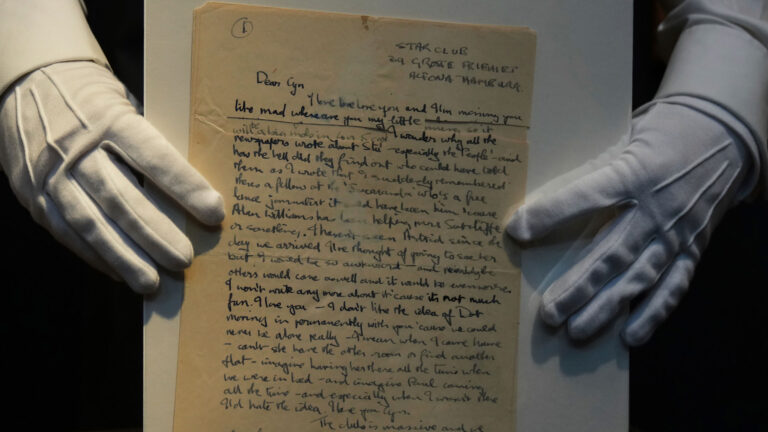 1
STAR CLUB
39 GROSSE FREIHEIT
ALTONA HAMBURG.
Dear Cyn
I love love love you and I'm missing you
like mad where are you my little
I wonder why all the
newspapers wrote about Stu – especially the 'People' – and
how the hell did they find out who could have told
them as I wrote that I suddenly remembered
theres a fellow at the 'Jacaranda' who's a free
lance journalist it could have been him 'cause
Alan Williams has been helping mrs Sutcliffe
or something. I haven't seen Astrid since the
day we arrived I've thought of going to see her
but I would be so awkward – and probably the
others would come as well and it would be even worse
I won't write any more about it 'cause its not much
fun. I love you – I don't like the idea of Dot
moving in permanently with you 'cause we could
never be alone really – I mean when I come home
– cant she have the other room or find another
flat – imagine having her there all the time when
we were in bed – and imagine Paul coming
all the time – and especially when I wasn't there
I'd hate the idea. I love you Cyn.
The club is massive and we